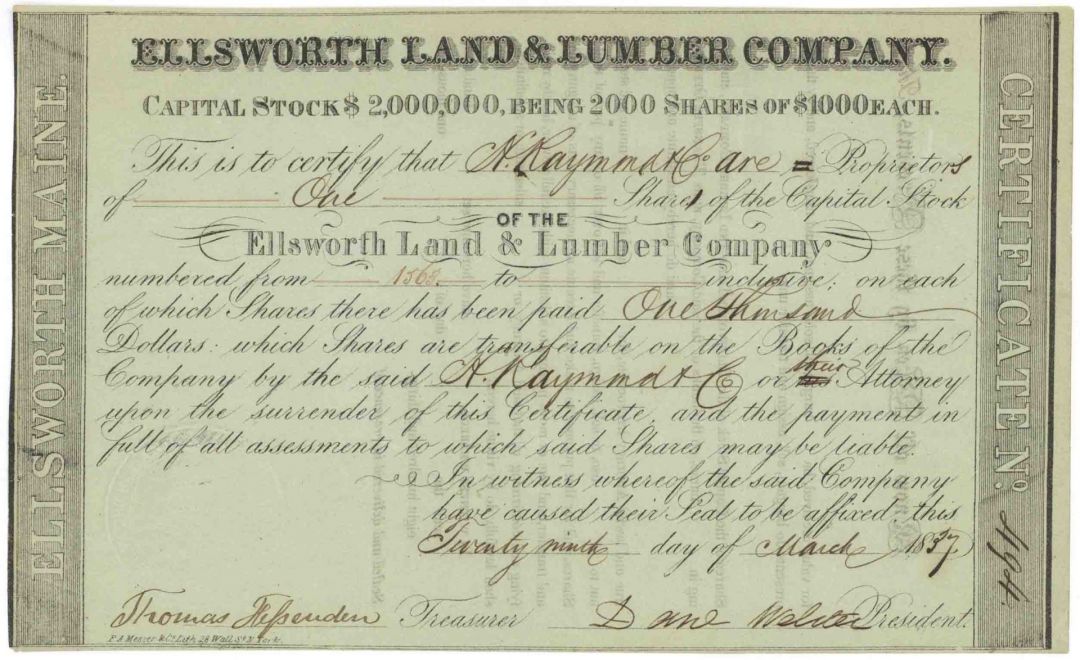 ELLSWORTH LAND & LUMBER COMPANY.
CAPITAL STOCK $ 2,000,000, BEING 2000 SHARES OF $1000 EACH.
This is to certify that A. Raymond & Co are = Proprietors
of One Share of the Capital Stock
OF THE
Ellsworth Land & Lumber Company
numbered from 1568. to inclusive; on each
of which Shares there has been paid One Thousand
Dollars: which Shares are transferable on the Books of the
Company by the said A. Raymond & Co or their Attorney
upon the surrender of this Certificate, and the payment in
full of all assessments to which said Shares may be liable.
In witness whereof the said Company
have caused their Seal to be affixed, this
Twenty ninth day of March 1837.
Thomas Fessenden Treasurer President.
P. A. Mesier & Co. Lith. 28 Wall St. N. York.
ELLSWORTH MAINE.
CERTIFICATE No.